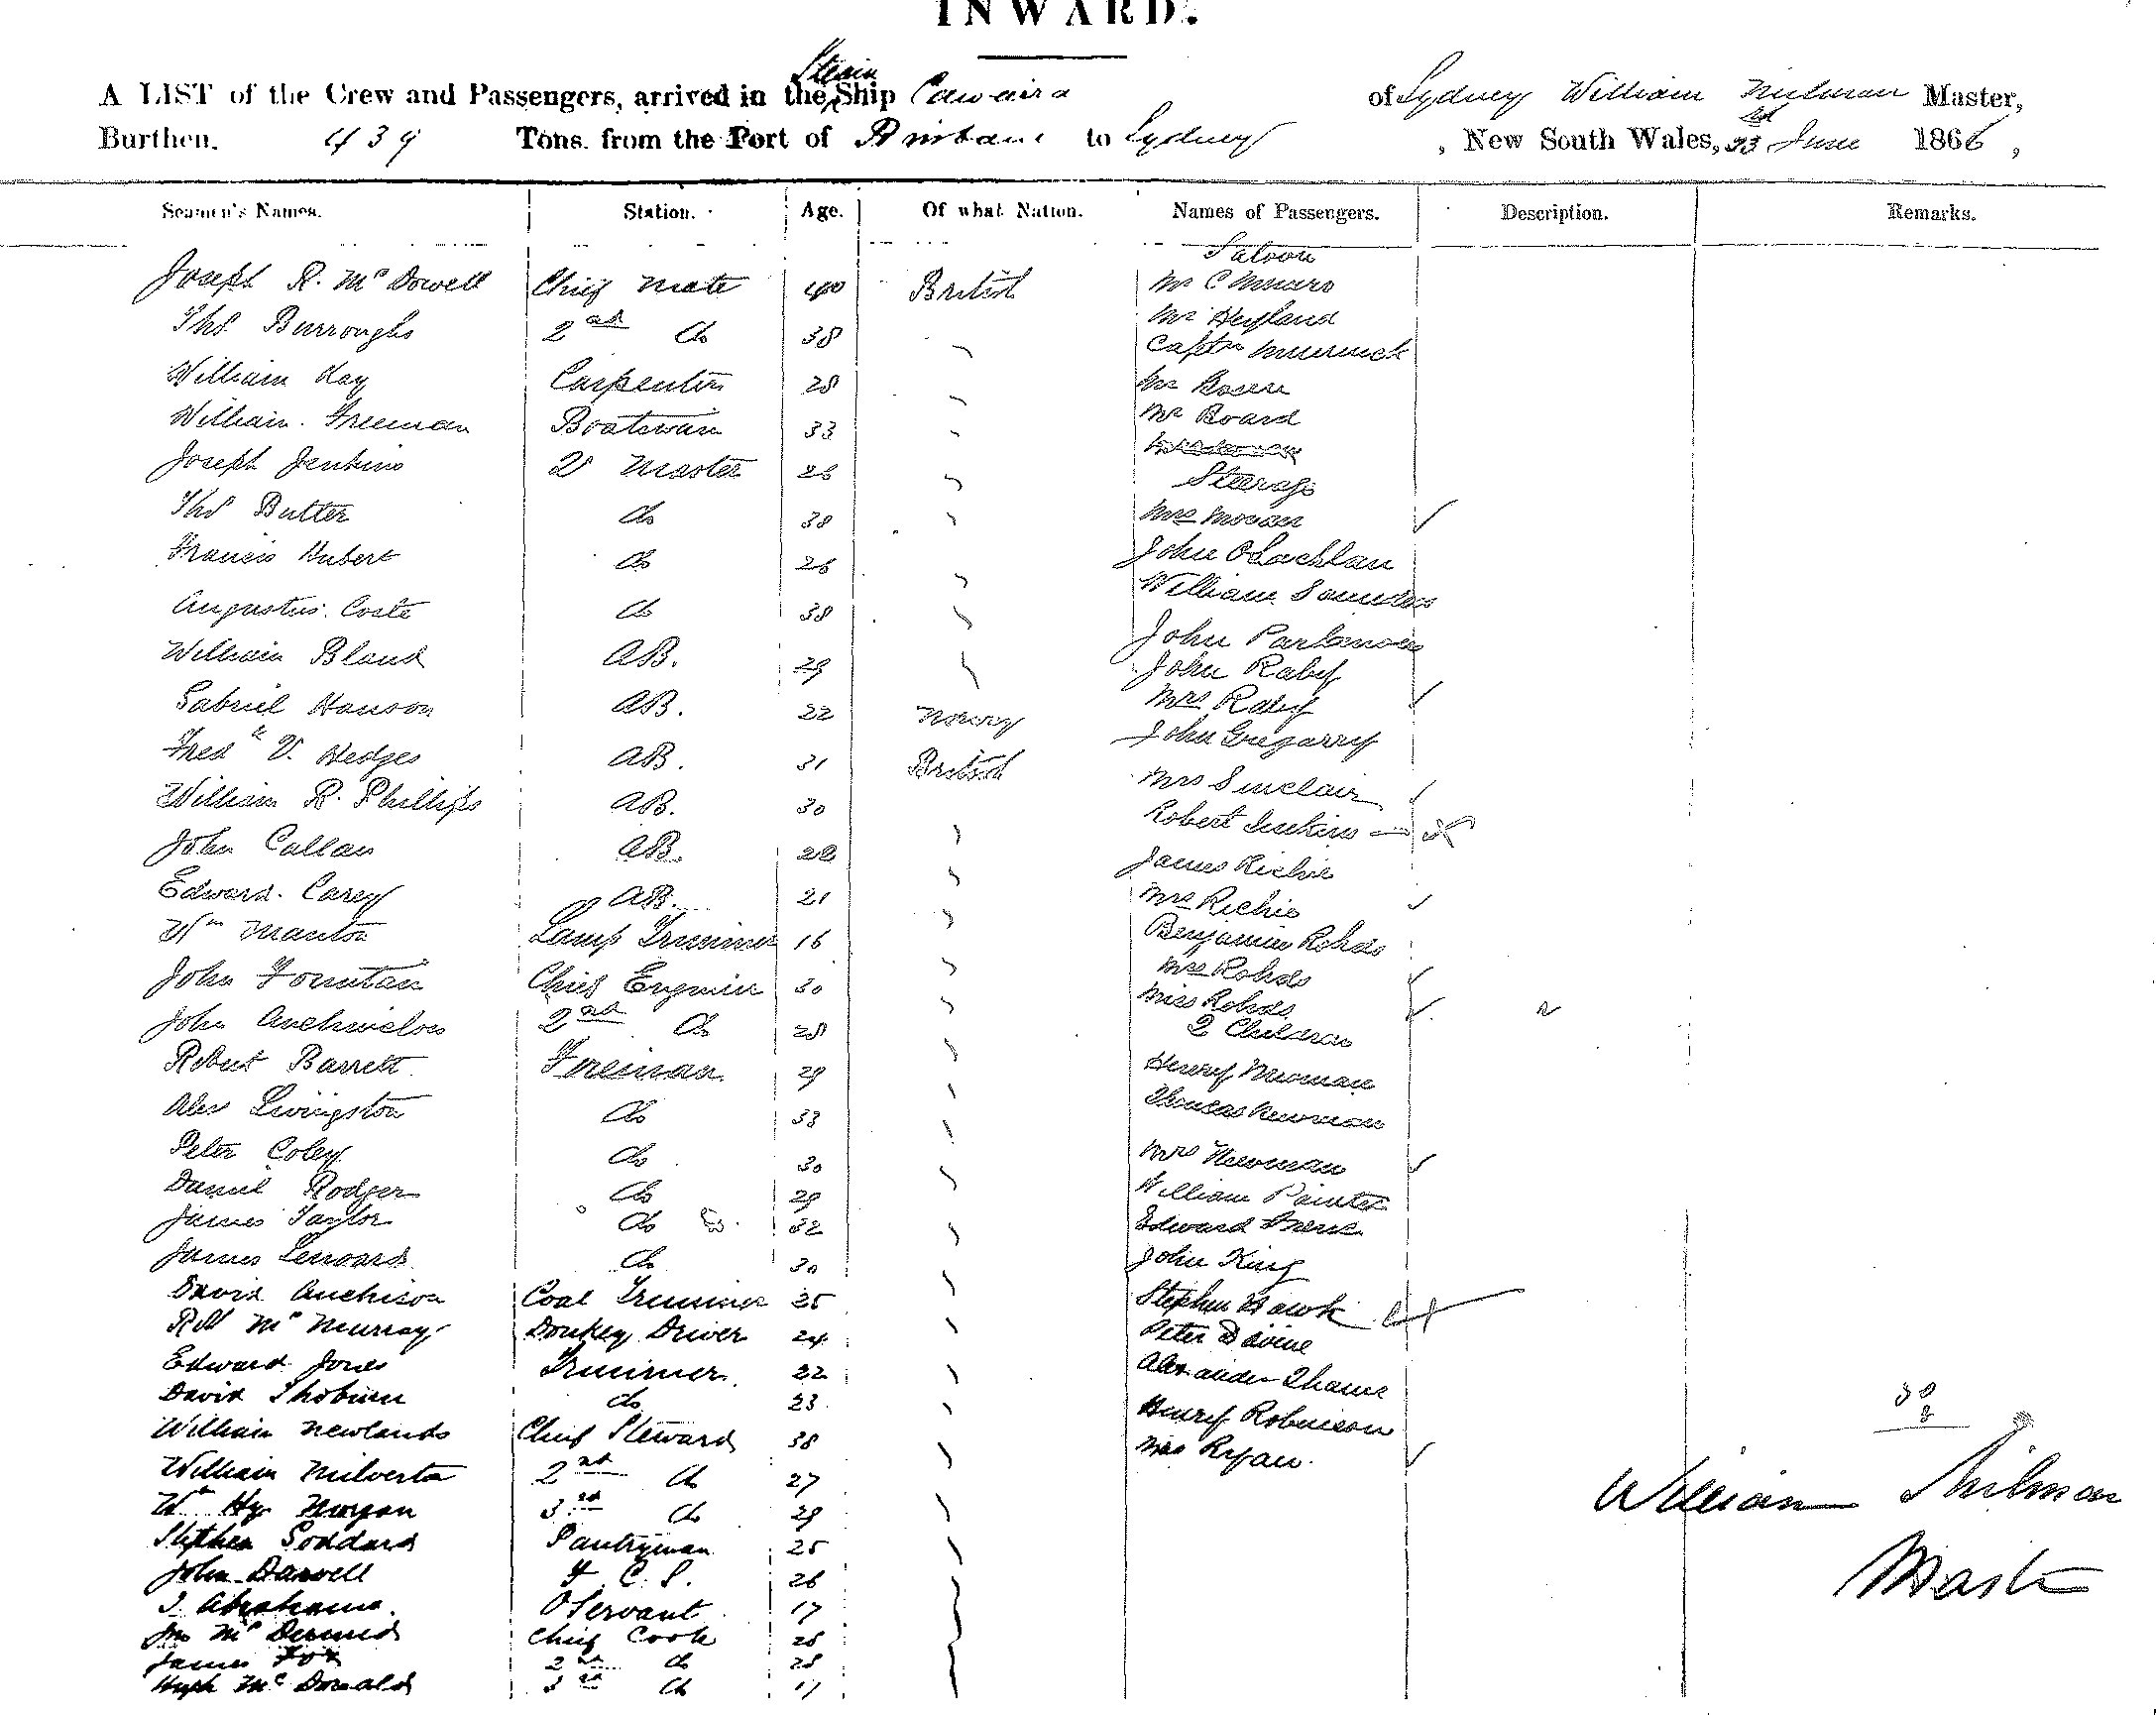 INWARD.
A LIST of the Crew and Passengers, arrived in the Steam Ship Cawarra of Sydney William Milman Master,
Burthen. 439 Tons. from the Port of Brisbane to Sydney, New South Wales, 23rd June 1866,
Seamen's Names. Station. Age. Of what Nation. Names of Passengers. Description. Remarks.
Saloon
Joseph R. McDowell Chief Mate 40 British Mr C Munro
Thos Burroughs 2nd do 38 Mr Heyland
William Kay Carpenter 28 Captn
William Freeman Boatswain 33 Mr
Mr Board
Joseph Jenkins 2r Master 26
Steerage
Thos Butter do 38 Mrs Moran
Francis Hubert do 26 John OLachlan
Augustus Coste do 38 William Saunders
William Bland AB. 29 John
John Raby
Gabriel Hanson AB. 22 Norway Mrs Raby
Fredk V. Hedges AB. 31 British John Gregarry
William R. Phillips AB. 30 Mrs Sinclair
Robert Jenkins
John Callan AB. 22 James Richie
Edward Carey AB. 21 Mrs Richie
Wm Manton Lamp Trimmer 16 Benjamin Rohds
John Fountain Chief Engineer 30 Mrs Rohds
Miss Rohds
John 2nd do 28 2 Children
Robert Barrett Fireman 29 Henry Newman
Alex Livingston do 33 Thomas Newman
Peter Coley do 30 Mrs Newman
Daniel Rodger do 29 William Painter
James Taylor do 32 Edward
James Lennard do 30 John King
David Auchison Coal Trimmer 25 Stephen Hawk
Rbt McMurray Donkey Driver 24 Peter Devine
Edward Jones Trimmer 22 Alexander
David Thoburn do 23 Henry Robinson
William Newlands Chief Steward 38 Mrs Ryan
William Milverton 2nd do 27 William Milman
Wm Hy Morgan 3rd do 29
Stephen Goddard Pantryman 25
John Darvell F. C. S. 26 Master
I. Abrahams OServant 17
Jno McDermid Chief Cook 25
James Fox 2nd do 28
Hugh McDonald 3rd do 17